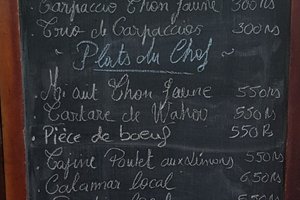 Carpaccio Thon Jaune 300Rs
Trio de Carpaccios 300Rs
~ Plats du Chef ~
Mi cuit Thon Jaune 550Rs
Tartare de Wahoo 550Rs
Pièce de boeuf 550Rs
Tajine Poulet aux Citrons 550Rs
Calamar local 650Rs
local